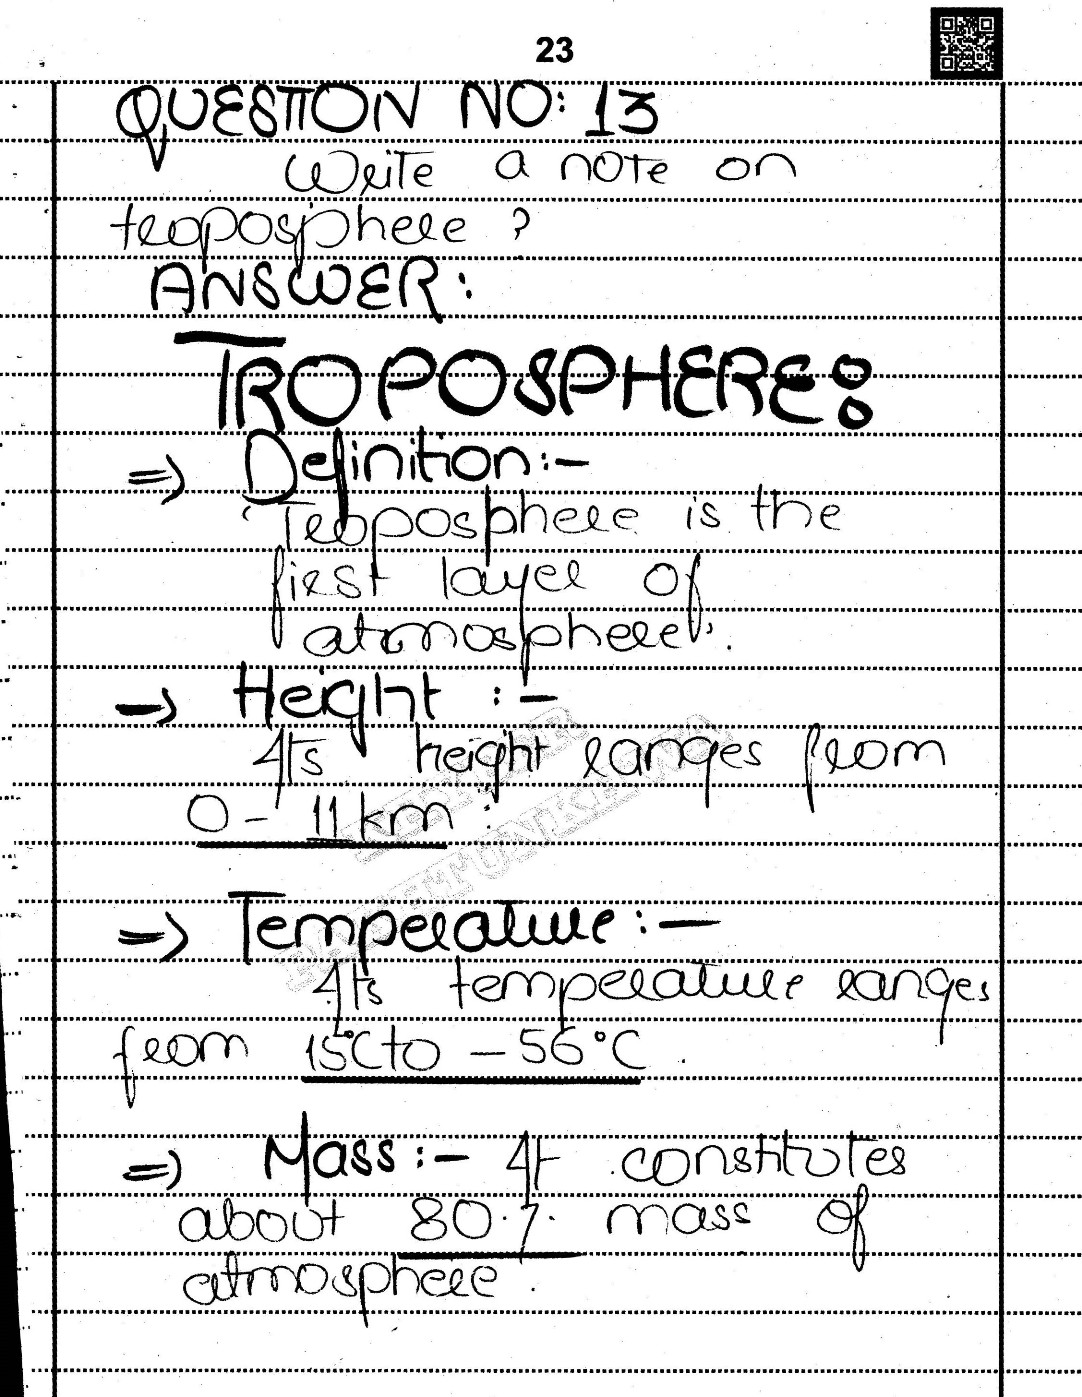 23
QUESTION NO: 13
Write a note on
troposphere ?
ANSWER:
TROPOSPHERE:
=> Definition:-
"Troposphere is the
first layer of
atmosphere".
-> Height :-
Its height ranges from
0 - 11 km.
=> Temperature:-
Its temperature ranges
from 15°C to - 56°C.
=> Mass:- It constitutes
about 80% mass of
atmosphere.
KHYBER
PAKHTUNKHWA